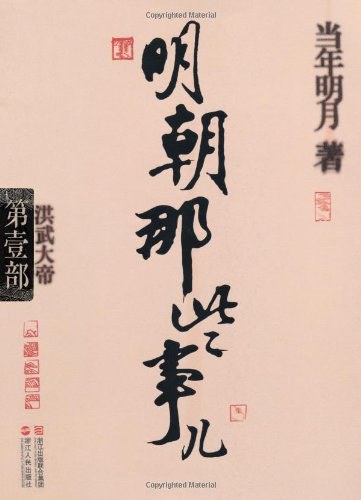 Copyrighted Material
当年明月 著
明朝那些事儿
洪武大帝
第壹部
浙江人民出版社
浙江出版联合集团
Copyrighted Material